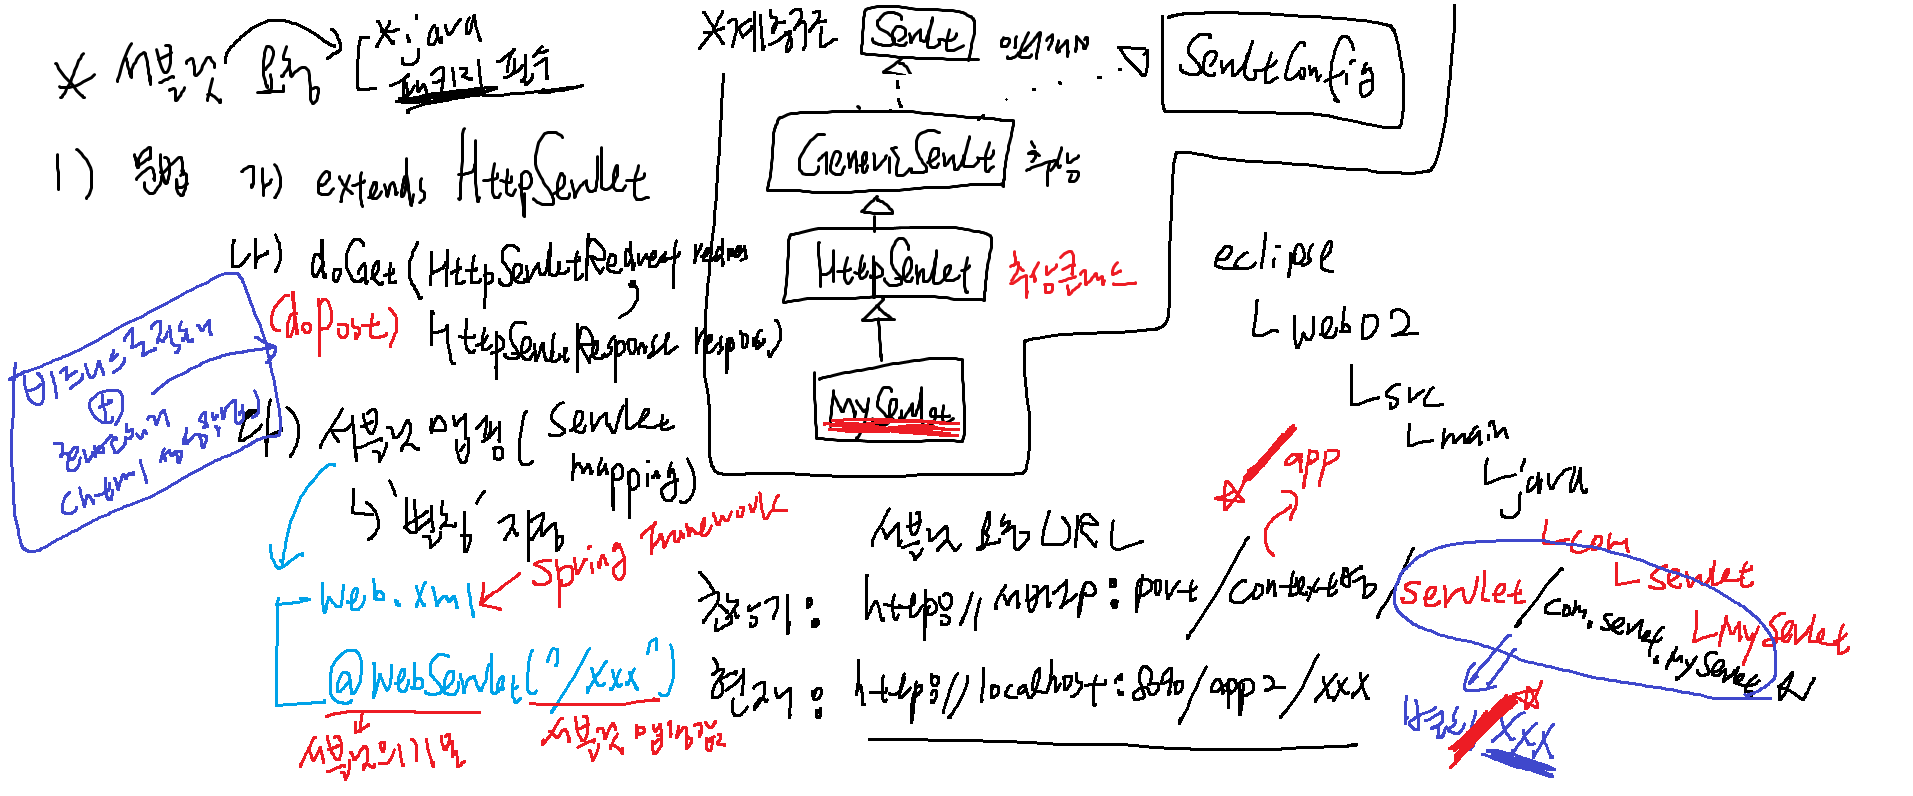 * 서블릿 요청
*.java
패키지 필수
1) 문법 가) extends HttpServlet
나) doGet(HttpServletRequest reques
(doPost)
HttpServletResponse respons)
비즈니스로직처리
+
(html
다) 서블릿 맵핑(servlet
mapping)
↳ '별칭' 지정
web.xml
Spring Framework
@WebServlet("/xxx")
서블릿의미
서블릿 맵핑값
*계층구조
Servlet
인터페이스
ServletConfig
GenericServlet
추상
HttpServlet
추상클래스
MyServlet
eclipse
ㄴweb02
ㄴsrc
ㄴmain
ㄴjava
ㄴcom
ㄴservlet
ㄴMyServlet
☆ app
서블릿 요청 URL
초창기 : http://서버ip:port/context명/servlet/com.servlet.MyServlet
현재 : http://localhost:8090/app2/xxx
별칭 xxx